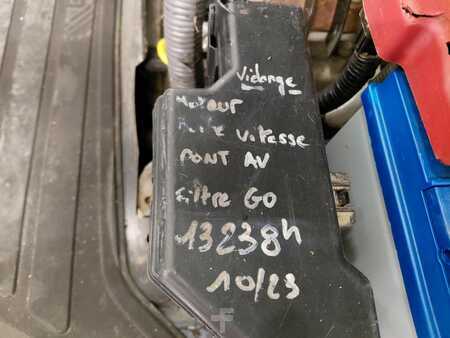 Vidange
Moteur
Boite Vitesse
PONT AV
Filtre GO
13238h
10/23